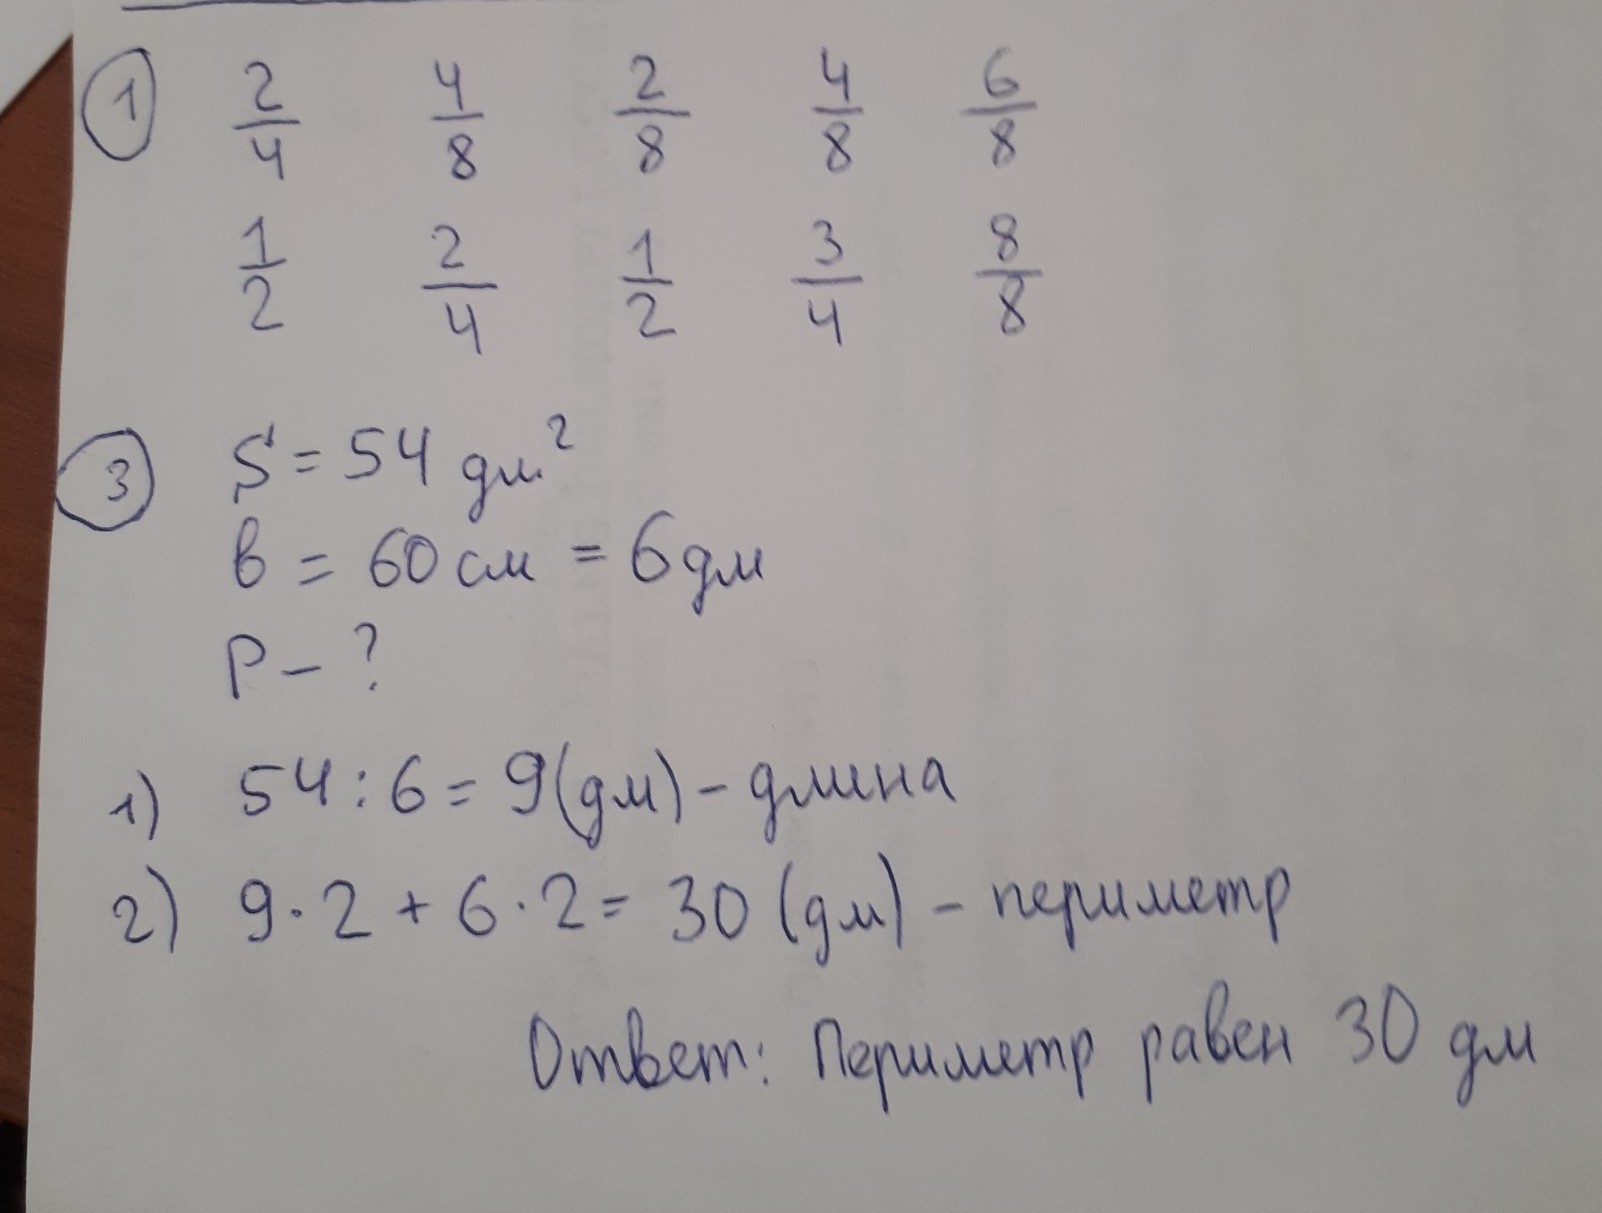 1 2/4 4/8 2/8 4/8 6/8
1/2 2/4 1/2 3/4 8/8
3 S = 54 дм²
в = 60 см = 6 дм
P - ?
1) 54 : 6 = 9 (дм) - длина
2) 9 · 2 + 6 · 2 = 30 (дм) - периметр
Ответ: Периметр равен 30 дм